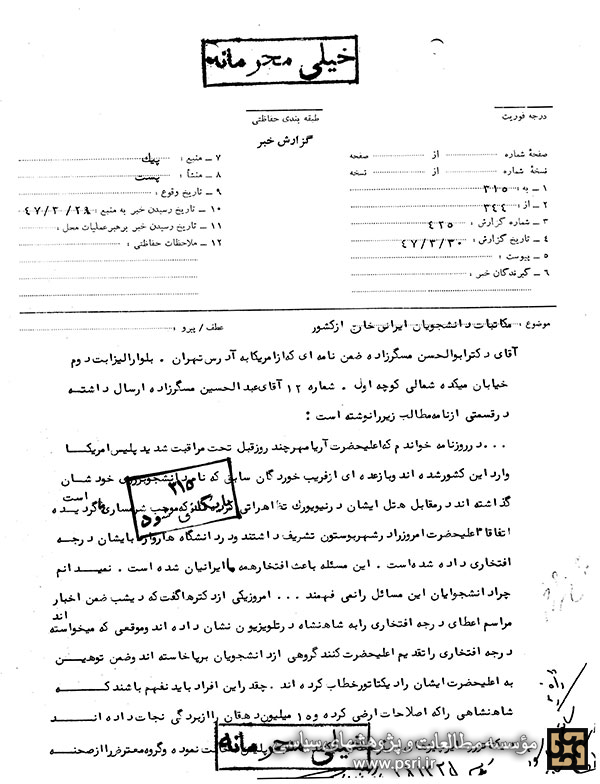 خیلی محرمانه
درجه فوریت
طبقه بندی حفاظتی
گزارش خبر
صفحهٔ شماره از صفحه
نسخهٔ شماره از نسخه
۱ ـ به : ۳۱۵
۲ ـ از : ۳۴۴
۳ ـ شماره گزارش : ۴۲۵
۴ ـ تاریخ گزارش : ۴۷/۳/۳۰
۵ ـ پیوست :
۶ ـ گیرندگان خبر :
۷ ـ منبع : پیک
۸ ـ منشأ : پست
۹ ـ تاریخ وقوع :
۱۰ ـ تاریخ رسیدن خبر به منبع : ۴۷/۳/۲۹
۱۱ ـ تاریخ رسیدن خبر برهبرعملیات محل :
۱۲ ـ ملاحظات حفاظتی :
موضوع : مکاتبات دانشجویان ایرانی خارج ازکشور عطف / پیرو :
آقای دکترابوالحسن مسگرزاده ضمن نامه ای که ازامریکابه آدرس تهران . بلوارالیزابت دوم
خیابان میکده شمالی کوچه اول . شماره ۱۲ آقای عبدالحسین مسگرزاده ارسال داشته
درقسمتی ازنامه مطالب زیررانوشته است :
...درروزنامه خواندم که اعلیحضرت آریامهرچند روزقبل تحت مراقبت شدید پلیس امریکا
وارد این کشورشده اند وبازعده ای ازفریب خوردگان سابق که نام دانشجوبرروی خود شان
گذاشته اند درمقابل هتل ایشان درنیویورک تظاهراتی که موجب شرمساری ما گردیده است
اتفاقا اعلیحضرت امروزراد رشهربوستون تشریف داشتند ودردانشگاه هاروارد بایشان درجه
افتخاری داده شده است . این مسئله باعث افتخارهمه ما ایرانیان شده است . نمیدانم
چرادانشجوایان این مسائل رانمی فهمند ... امروزیکی ازدکترهاگفت که دیشب ضمن اخبار
مراسم اعطای درجه افتخاری رابه شاهنشاه درتلویزیون نشان داده اند وموقعی که میخواسته اند
درجه افتخاری راتقدیم اعلیحضرت کنند گروهی ازدانشجویان برپاخاسته اند وضمن توهین
به اعلیحضرت ایشان رادیکتاتورخطاب کرده اند . چقدراین افراد باید نفهم باشند که
شاهنشاهی راکه اصلاحات ارضی کرده و ۱۵ میلیون دهقان راازبردگی نجات داده اند
نموده وگروه معترض راازصحنه
۳۱۵
بایگانی شود
خیلی محرمانه
مؤسسه مطالعات و پژوهشهای سیاسی
www.psri.ir